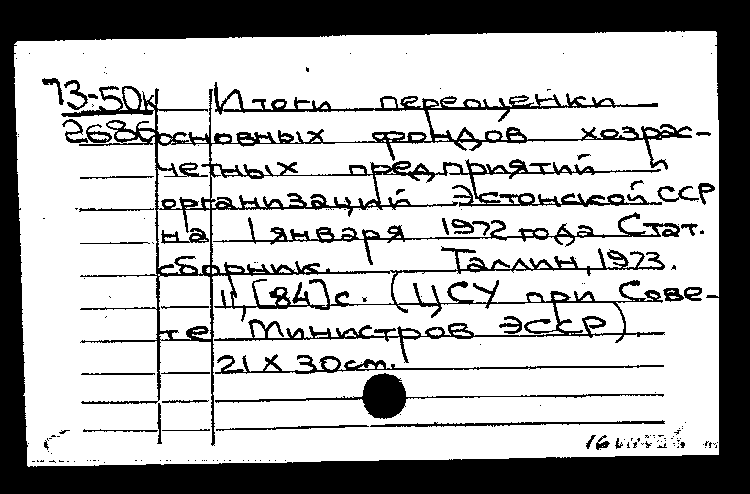 73-50к Итоги переоценки
2686 основных фондов хозрас-
четных предприятий и
организаций Эстонской ССР
на 1 января 1972 года. Стат.
сборник. Таллин, 1973.
11, [84] с. (ЦСУ при Сове-
те Министров ЭССР)
21 X 30 cm.
16